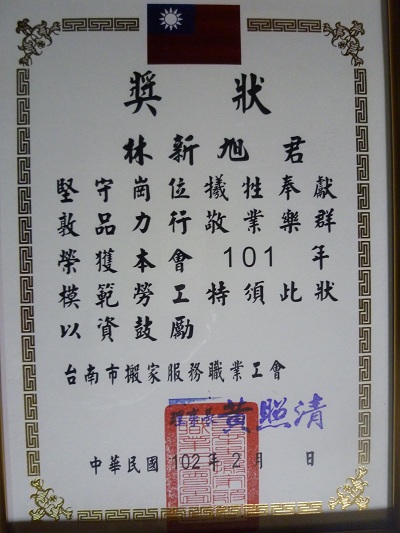 獎狀
林新旭君
堅守崗位犧牲奉獻
敦品力行敬業樂群
榮獲本會101年
模範勞工特須此狀
以資鼓勵
台南市搬家服務職業工會
理事長 黃照清
中華民國102年2月 日